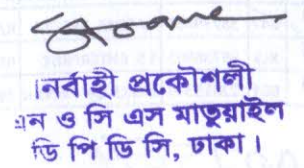 নির্বাহী প্রকৌশলী
এন ও সি এস মাতুয়াইল
ডি পি ডি সি, ঢাকা।